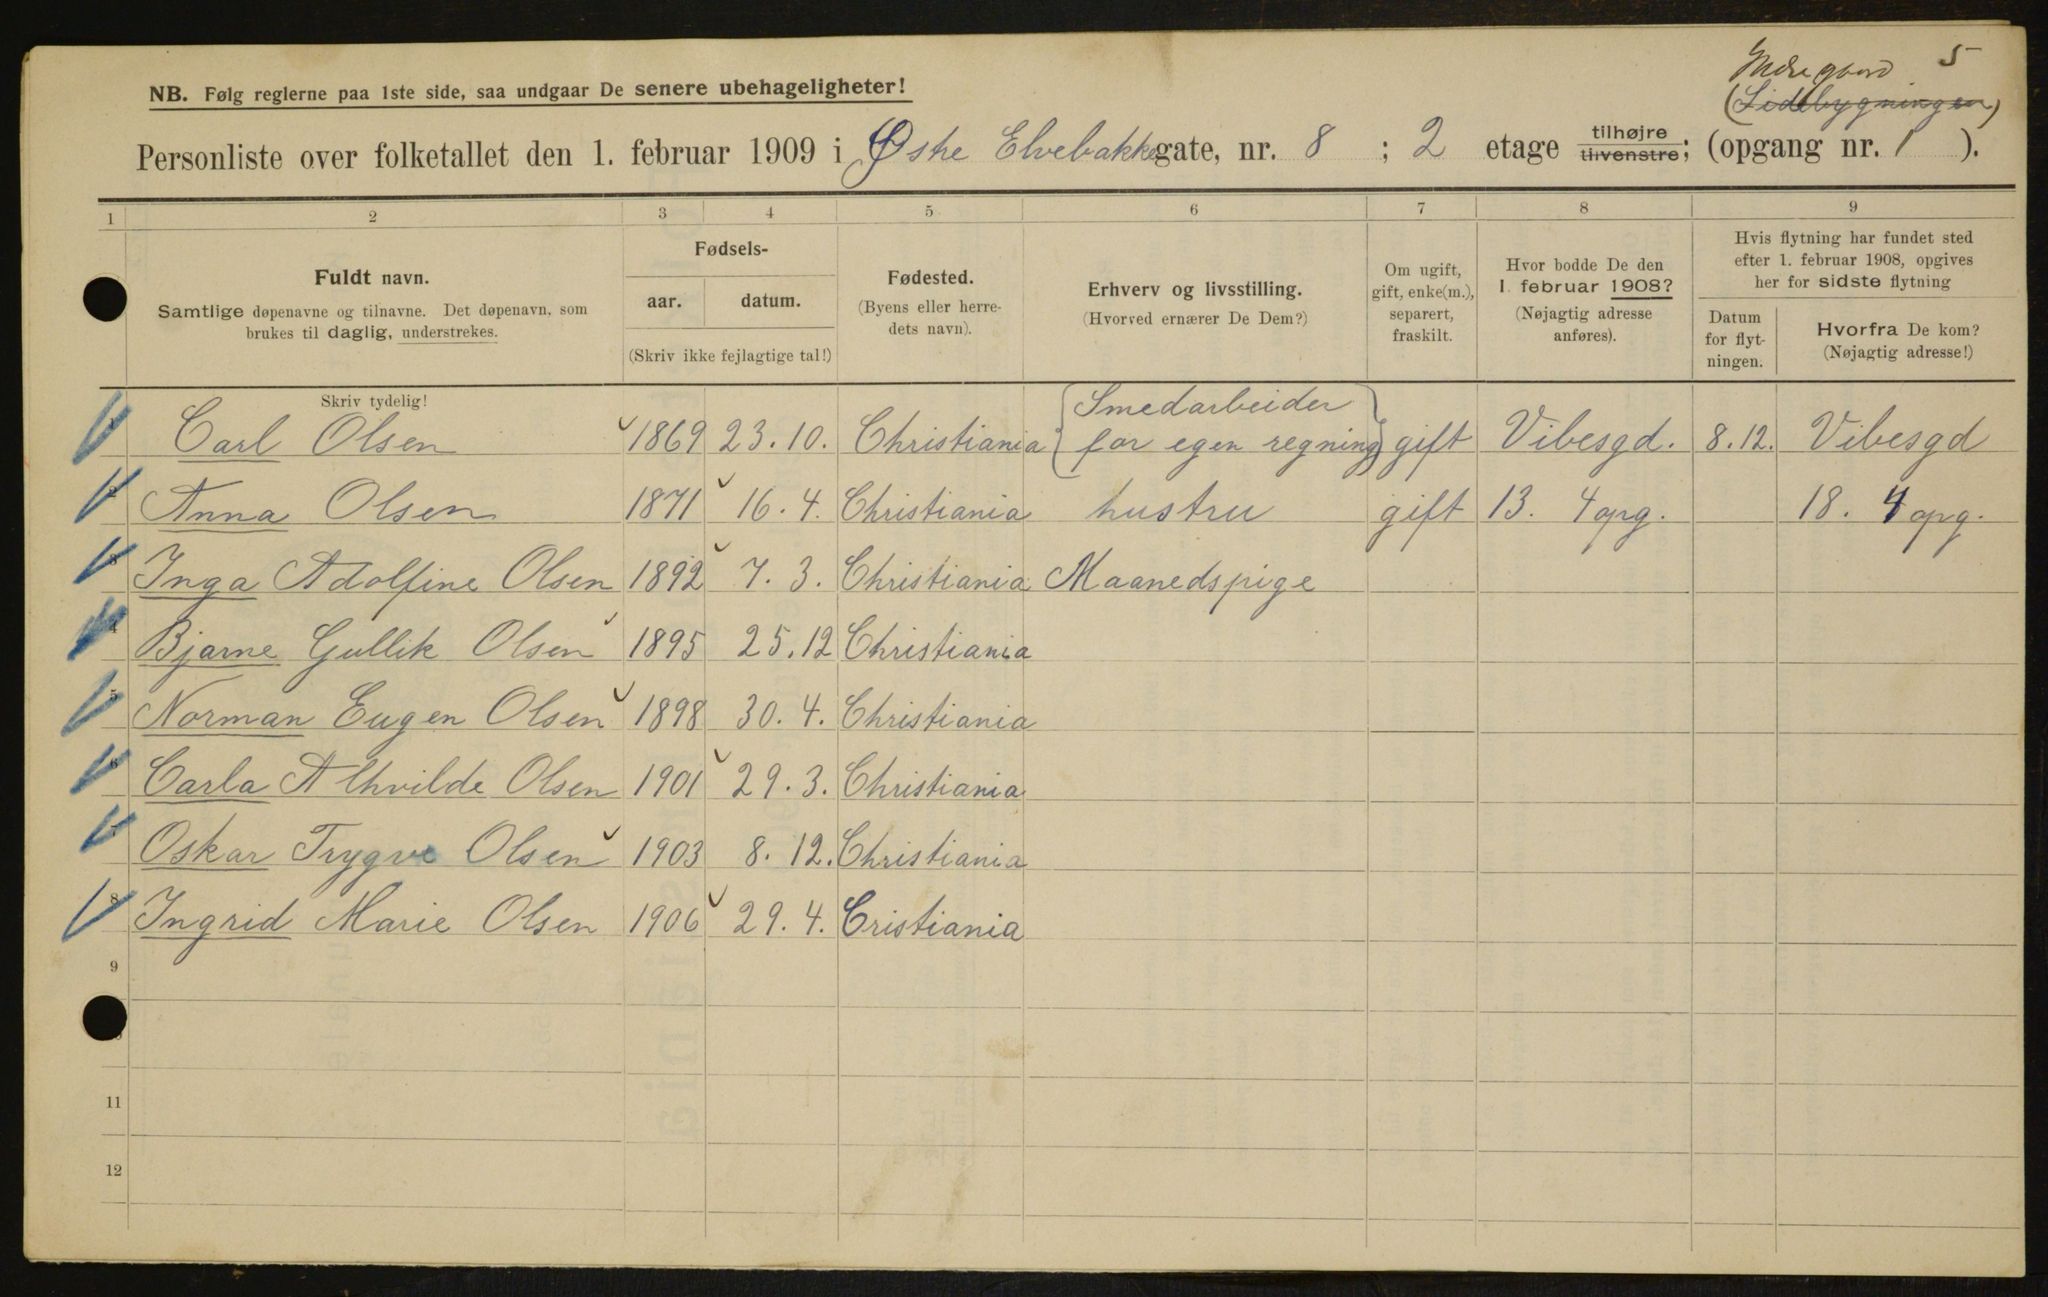 5
Indre gaard
(Sidebygningen)
NB. Følg reglerne paa 1ste side, saa undgaar De senere ubehageligheter!
Personliste over folketallet den 1. februar 1909 i Østre Elvebakkegate, nr. 8 ; 2 etage tilhøjre tilvenstre; (opgang nr. 1 ).
1 2 3 4 5 6 7 8 9
Fuldt navn.
Samtlige døpenavne og tilnavne. Det døpenavn, som
brukes til daglig, understrekes.
Fødsels-
aar. datum.
(Skriv ikke fejlagtige tal!)
Fødested.
(Byens eller herre-
dets navn).
Erhverv og livsstilling.
(Hvorved ernærer De Dem?)
Om ugift,
gift, enke(m.),
separert,
fraskilt.
Hvor bodde De den
1. februar 1908?
(Nøjagtig adresse
anføres).
Hvis flytning har fundet sted
efter 1. februar 1908, opgives
her for sidste flytning
Datum
for flyt-
ningen.
Hvorfra De kom?
(Nøjagtig adresse!)
Skriv tydelig!
1 Carl Olsen 1869 23.10. Christiania {Smedarbeider
for egen regning} gift Vibesgd. 8.12. Vibesgd
2 Anna Olsen 1871 16.4. Christiania hustru gift 13. 4 opg. 18. 4 opg.
3 Inga Adolfine Olsen 1892 7.3. Christiania Maanedspige
4 Bjarne Gullik Olsen 1895 25.12 Christiania
5 Norman Eugen Olsen 1898 30.4. Christiania
6 Carla Alhvilde Olsen 1901 29.3. Christiania
7 Oskar Trygve Olsen 1903 8.12. Christiania
8 Ingrid Marie Olsen 1906 29.4. Cristiania
9
11
12